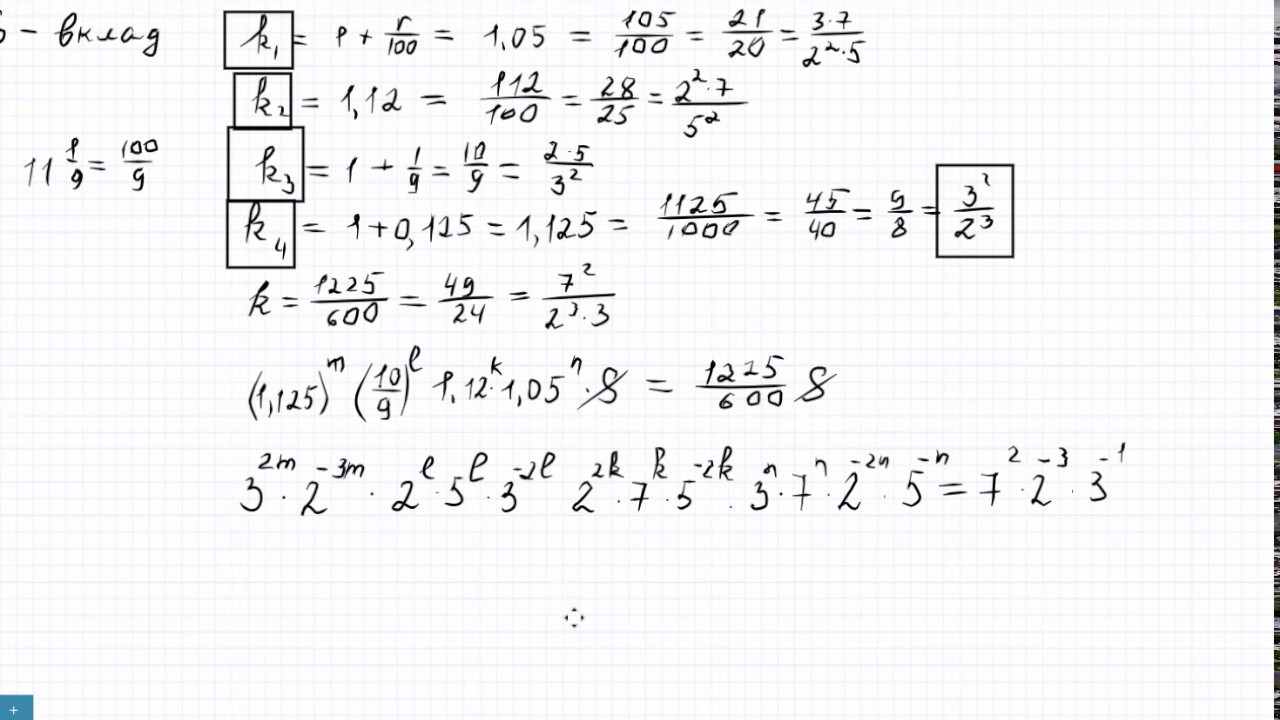 S – вклад
k₁ = 1 + r/100 = 1,05 = 105/100 = 21/20 = 3·7/2²·5
k₂ = 1,12 = 112/100 = 28/25 = 2²·7/5²
11 1/9 = 100/9
k₃ = 1 + 1/9 = 10/9 = 2·5/3²
k₄ = 1+0,125 = 1,125 = 1125/1000 = 45/40 = 9/8 = 3²/2³
k = 1225/600 = 49/24 = 7²/2³·3
(1,125)^m (10/9)^l 1,12^k · 1,05^n · S = 1225/600 S
3^2m · 2^-3m · 2^l · 5^l · 3^-2l 2^2k · 7^k · 5^-2k · 3^n · 7^n · 2^-2n · 5^-n = 7^2 · 2^-3 · 3^-1
+